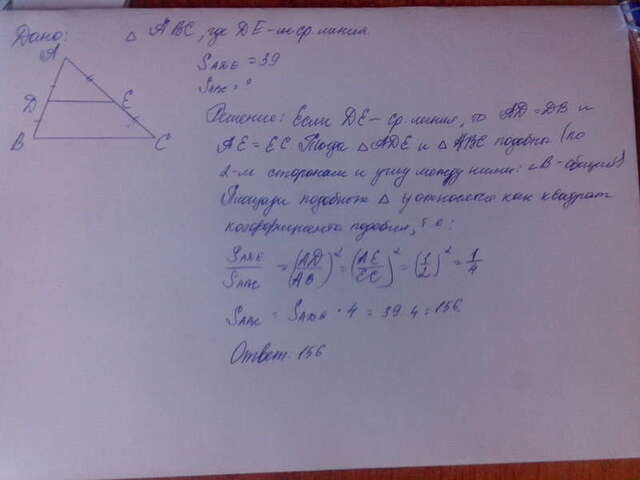 Дано: △ ABC, где DE - ср. линия
S ADE = 39
S ABC = ?
A
D
E
B
C
Решение: Если DE - ср. линия, то AD = DB и
AE = EC Тогда △ ADE и △ ABC подобны (по
2-м сторонам и углу между ними: ∠B - общий)
Площади подобных △ относятся как квадрат
коэффициента подобия, т.е:
S ADE / S ABC = (AD / AB)² = (AE / EC)² = (1/2)² = 1/4
S ABC = S ADE · 4 = 39 · 4 = 156
Ответ: 156